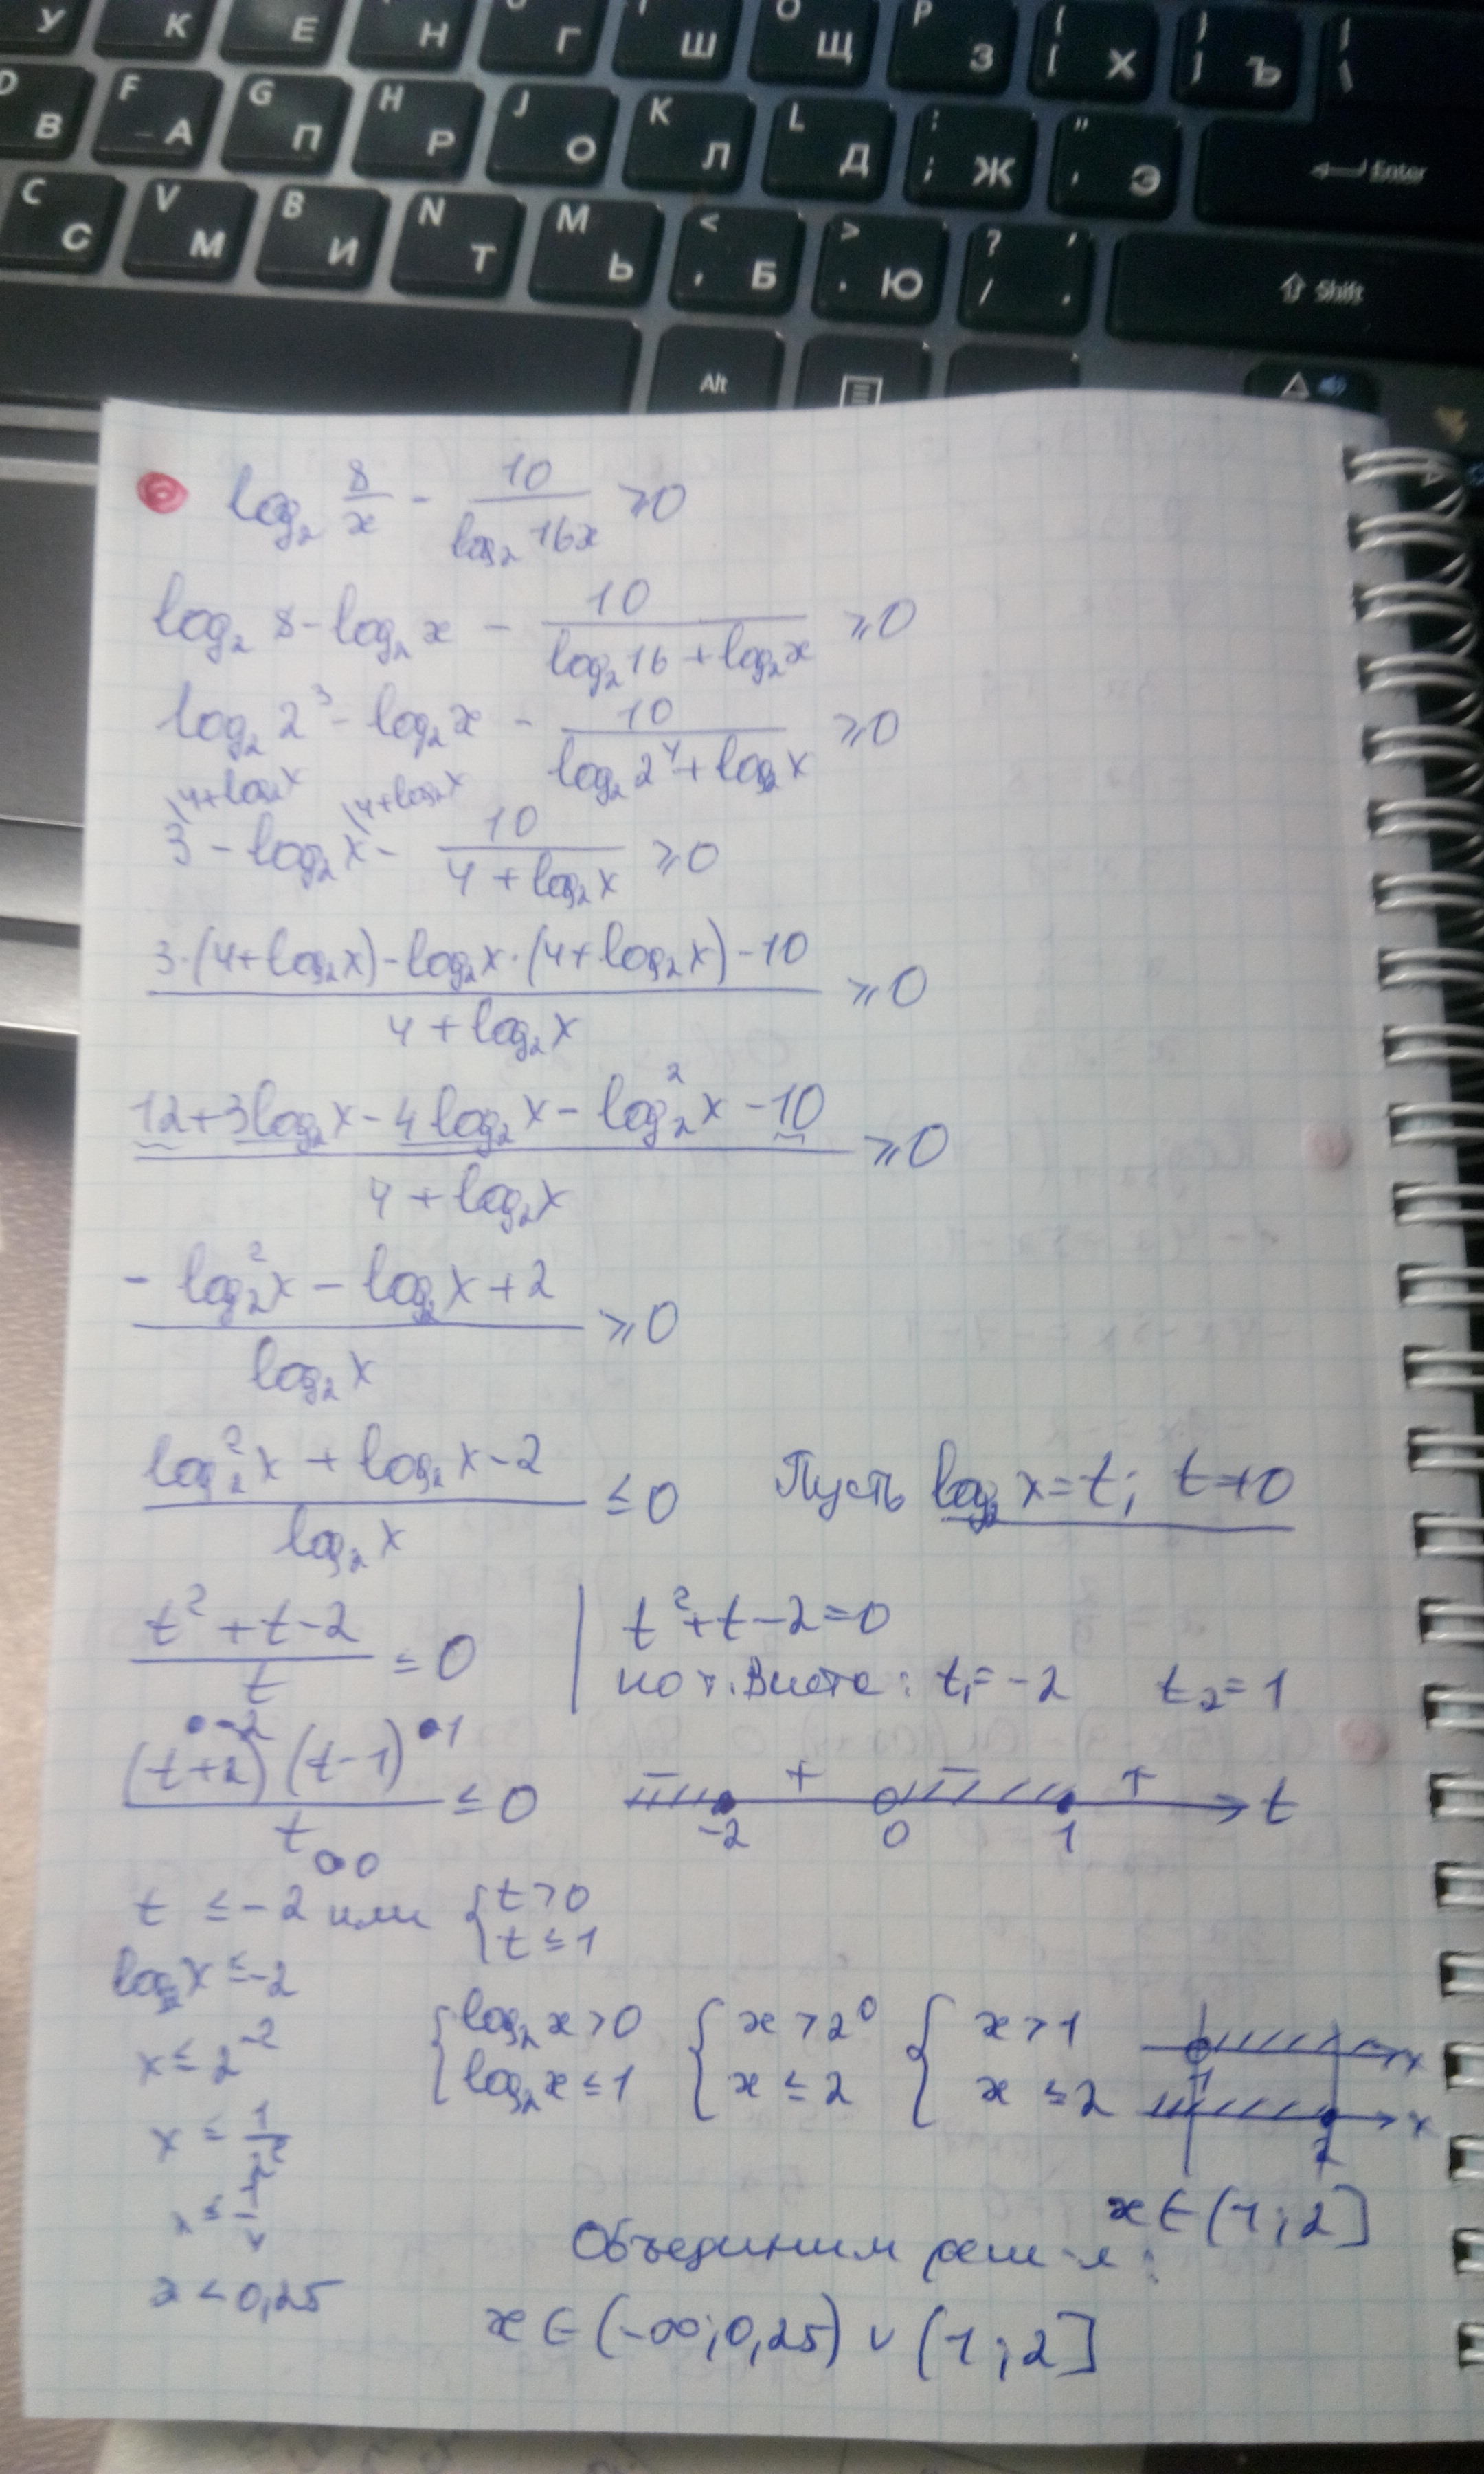 У К Е Н Г Ш O Щ P З { [ Х } ] Ъ | \
D В F А G П H Р J О K Л L Д : ; Ж " ' Э Enter
C С V М B И N Т M Ь < , Б > . Ю ? / , . Shift
Alt
log₂ 8/x - 10/(log₂ 16x) ⩾0
log₂ 8 - log₂ x - 10/(log₂ 16 + log₂ x) ⩾0
log₂ 2³ - log₂ x - 10/(log₂ 2⁴ + log₂ x) ⩾0
\4+log₂x \4+log₂x
3 - log₂ x - 10/(4 + log₂ x) ⩾0
(3·(4+log₂x) - log₂x·(4+log₂x) - 10)/(4 + log₂x) ⩾0
(12+3log₂x - 4log₂x - log₂²x - 10)/(4 + log₂x) ⩾0
(- log₂²x - log₂x + 2)/(log₂x) ⩾0
(log₂²x + log₂x - 2)/(log₂x) ≤0 Пусть log₂ x = t; t≠0
(t² + t - 2)/t ≤ 0 | t² + t - 2 = 0
по т. Виета: t₁ = -2 t₂ = 1
-2 1
((t+2)(t-1))/t ≤ 0 - + - + t
0 -2 0 1
t ≤ -2 или { t > 0
t ≤ 1
log₂x ≤ -2
{ log₂x > 0 { x > 2⁰ { x > 1 x
log₂x ≤ 1 x ≤ 2 x ≤ 2 1 x
x ≤ 2⁻² 2
x ≤ 1/2²
x ≤ 1/4
x ∈ (1; 2]
Объединим реш-я:
x < 0,25
x ∈ (-∞; 0,25) ∪ (1; 2]